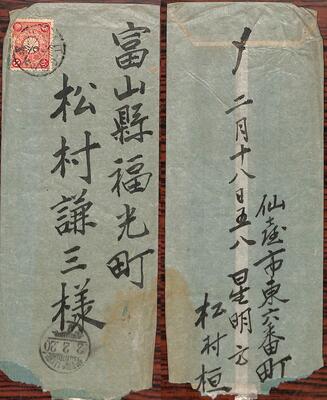 富山縣福光町
松村謙三様
2.2.20
〆
二月十八日五八
星明方
仙台市東六番町
松村桓